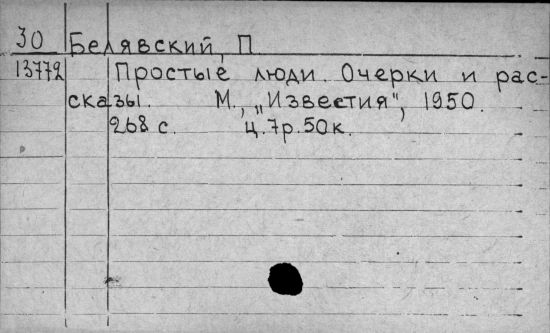 30 Белявский, П
13772 Простые люди. Очерки и рас-
сказы. М., „Известия", 1950.
268 с. Ц. 7р. 50к.